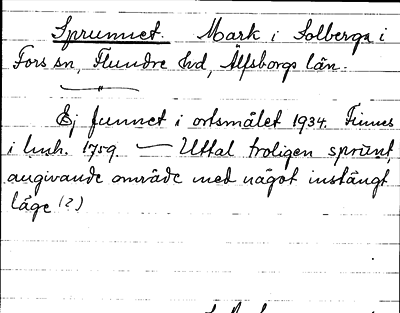 Sprunnet. Mark i Solberga i
Fors sn, Flundre hd, Älfsborgs län.
Ej funnet i ortsmålet 1934. Finnes
i lush. 1759. — Uttal troligen sprunt,
angivande område med något instängt
läge (?)